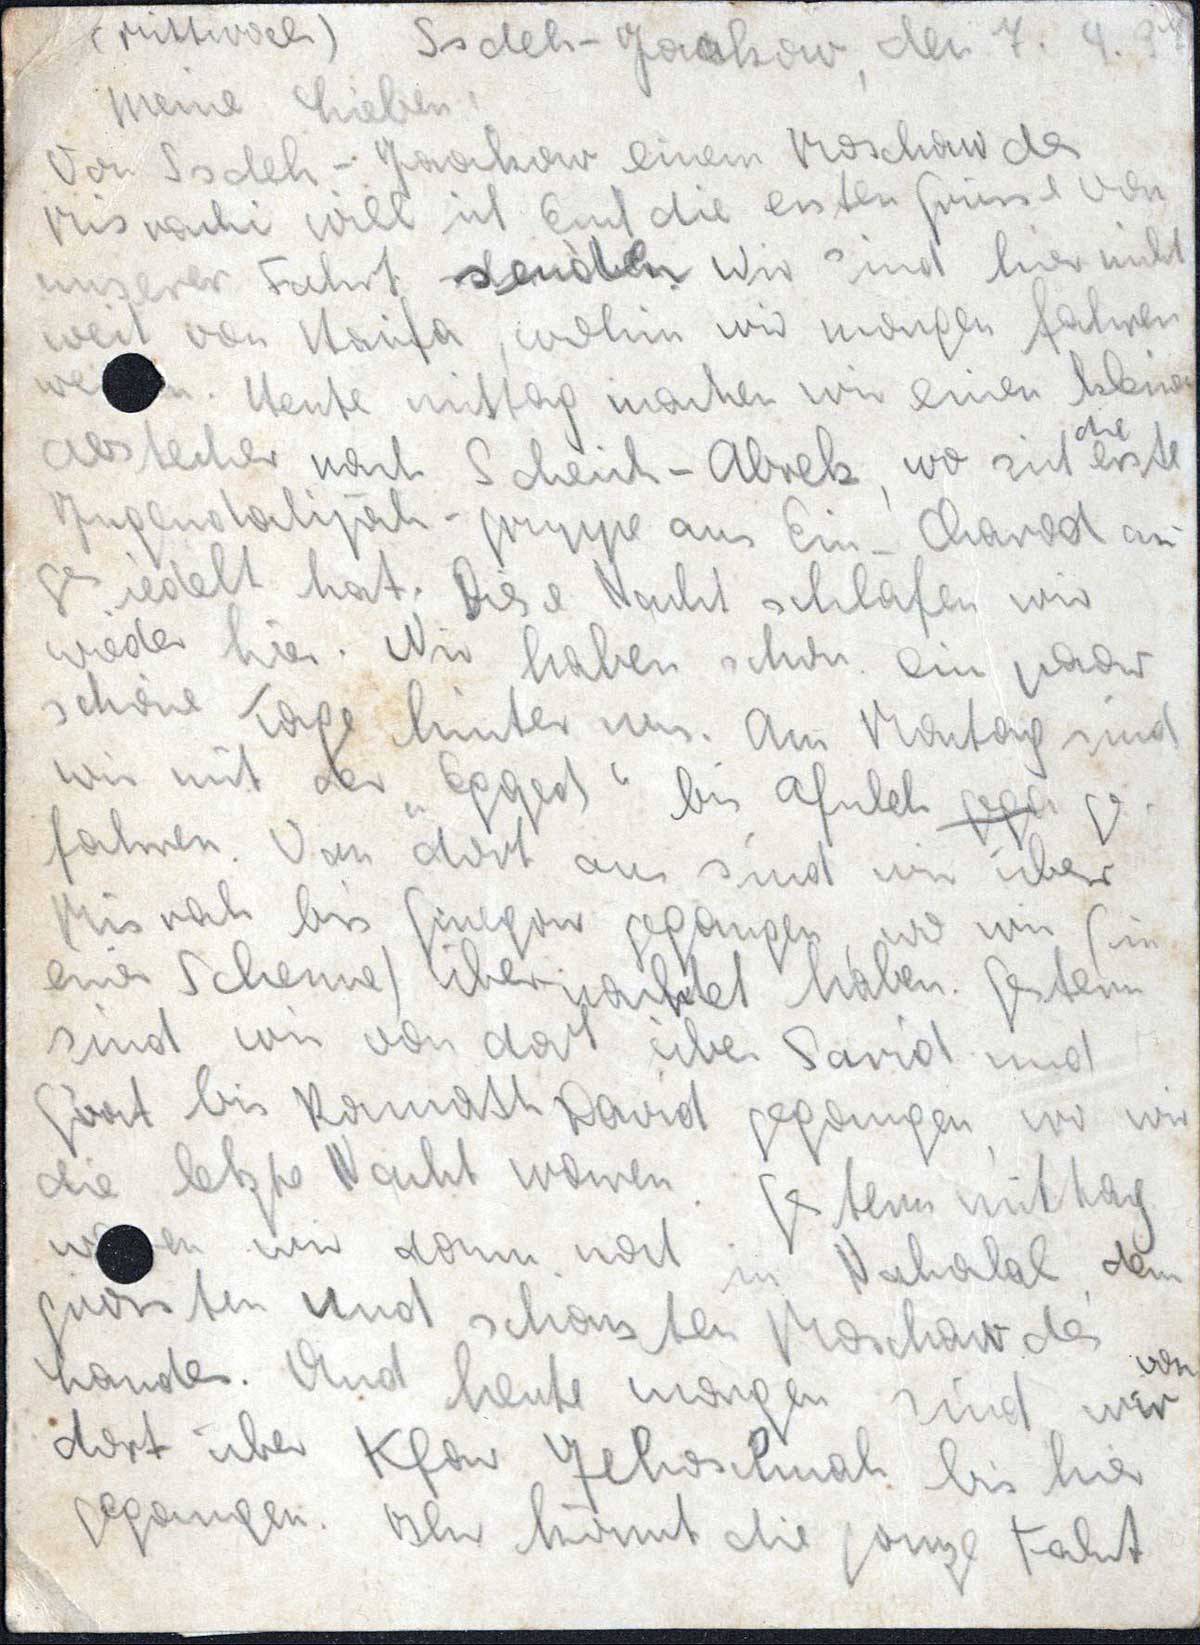 (Mittwoch) Ssdeh-Jaakow, den 7. 4. 37
Meine Lieben!
Von Ssdeh-Jaakow einem Moschaw des
Misrachi will ich Euch die ersten Grüsse von
unserer Fahrt senden. Wir sind hier nicht
weit von Haifa, wohin wir morgen fahren
we n. Heute mittag machen wir einen kleinen
abstecher nach Scheich-Abrek, wo sich die erste
Jugendalijah-gruppe aus Ein-Charod an
gesiedelt hat. Diese Nacht schlafen wir
wieder hier. Wir haben schon ein paar
schöne Tage hinter uns. Am Montag sind
wir mit der „Egged“ bis Afuleh gega ge-
fahren. Von dort aus sind wir über
Misrah bis Ginegar gegangen, wo wir (in
einer Scheune) übernachtet haben. Gestern
sind wir von dort über Sarid und
Gwat bis Ramath David gegangen, wo wir
die letzte Nacht waren. Gestern mittag
w en wir dann noch in Nahalal, dem
grössten und schönsten Moschaw des
Landes. Und heute morgen sind wir von
dort über Kfar Jehoschuah bis hier
gegangen. Ihr könnt die ganze Fahrt